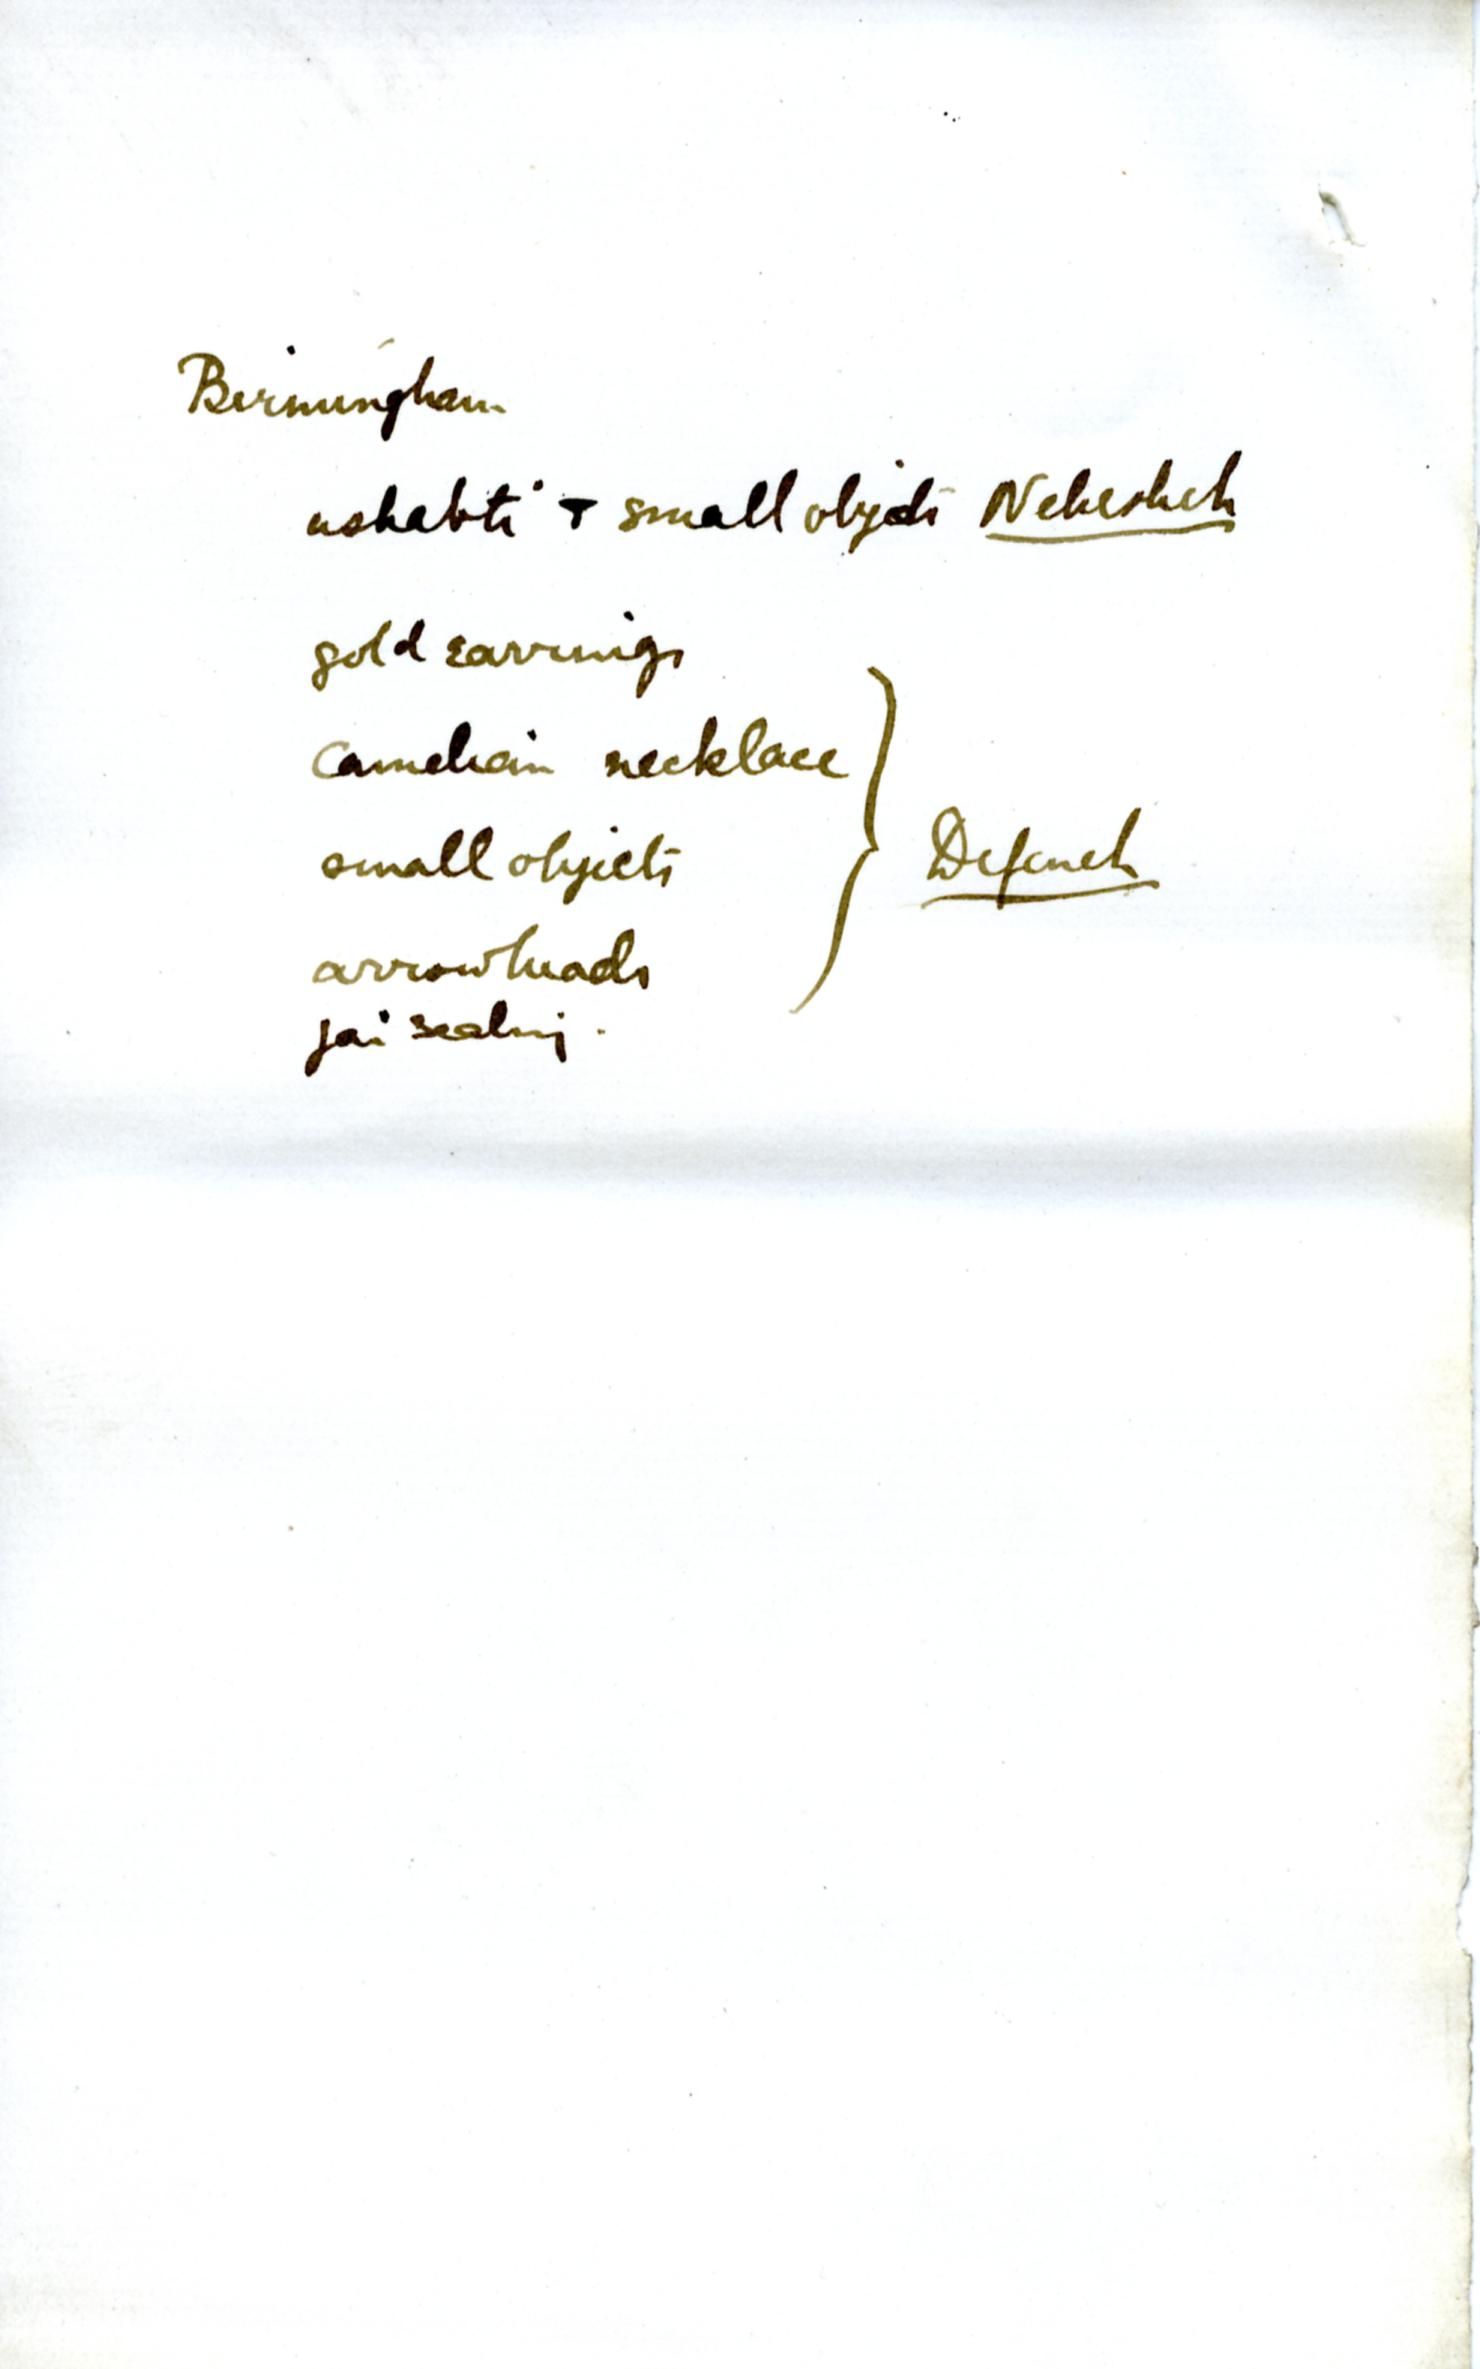 Birmingham
ushabti + small objects Nebesheh
gold earrings
Carnelian necklace
small objects
Defeneh
arrowheads
jar sealing.